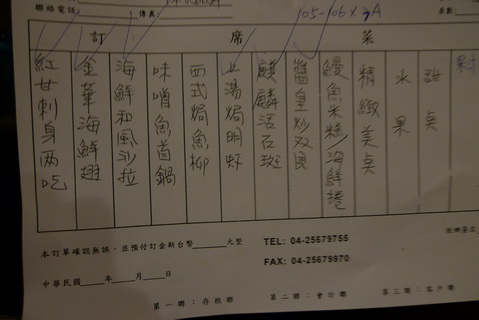 聯絡電話
傳真
105-106 X 3A
訂 席 菜
紅甘刺身兩吃
金華海鮮翅
海鮮和風沙拉
味噌魚首鍋
西式焗魚柳
上湯焗明虾
麒麟活石斑
醬皇炒双
鰻魚米糕/海鮮捲
精緻美奌
水果
甜奌
本訂單確認無誤，並預付訂金新台幣______元整
TEL: 04-25679755
FAX: 04-25679970
中華民國____年____月____日
第一聯：存根聯 第二聯：會計聯 第三聯：客戶聯